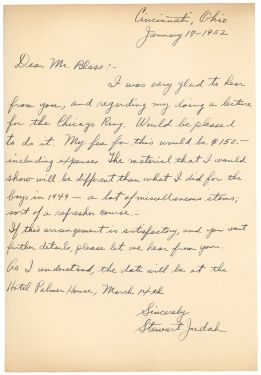 Cincinnati, Ohio
January 18-1952
Dear Mr. Blass:-
I was very glad to hear
from you, and regarding my doing a lecture
for the Chicago Ring. Would be pleased
to do it. My fee for this would be $150.-
including expenses. The material that I would
show will be different than what I did for the
boys in 1949 - a lot of miscellaneous items;
sort of a refresher course.-
If this arrangement is satisfactory, and you want
further details, please let me hear from you.
As I understand, the date will be at the
Hotel Palmer House, March 14th
Sincerely
Stewart Judah